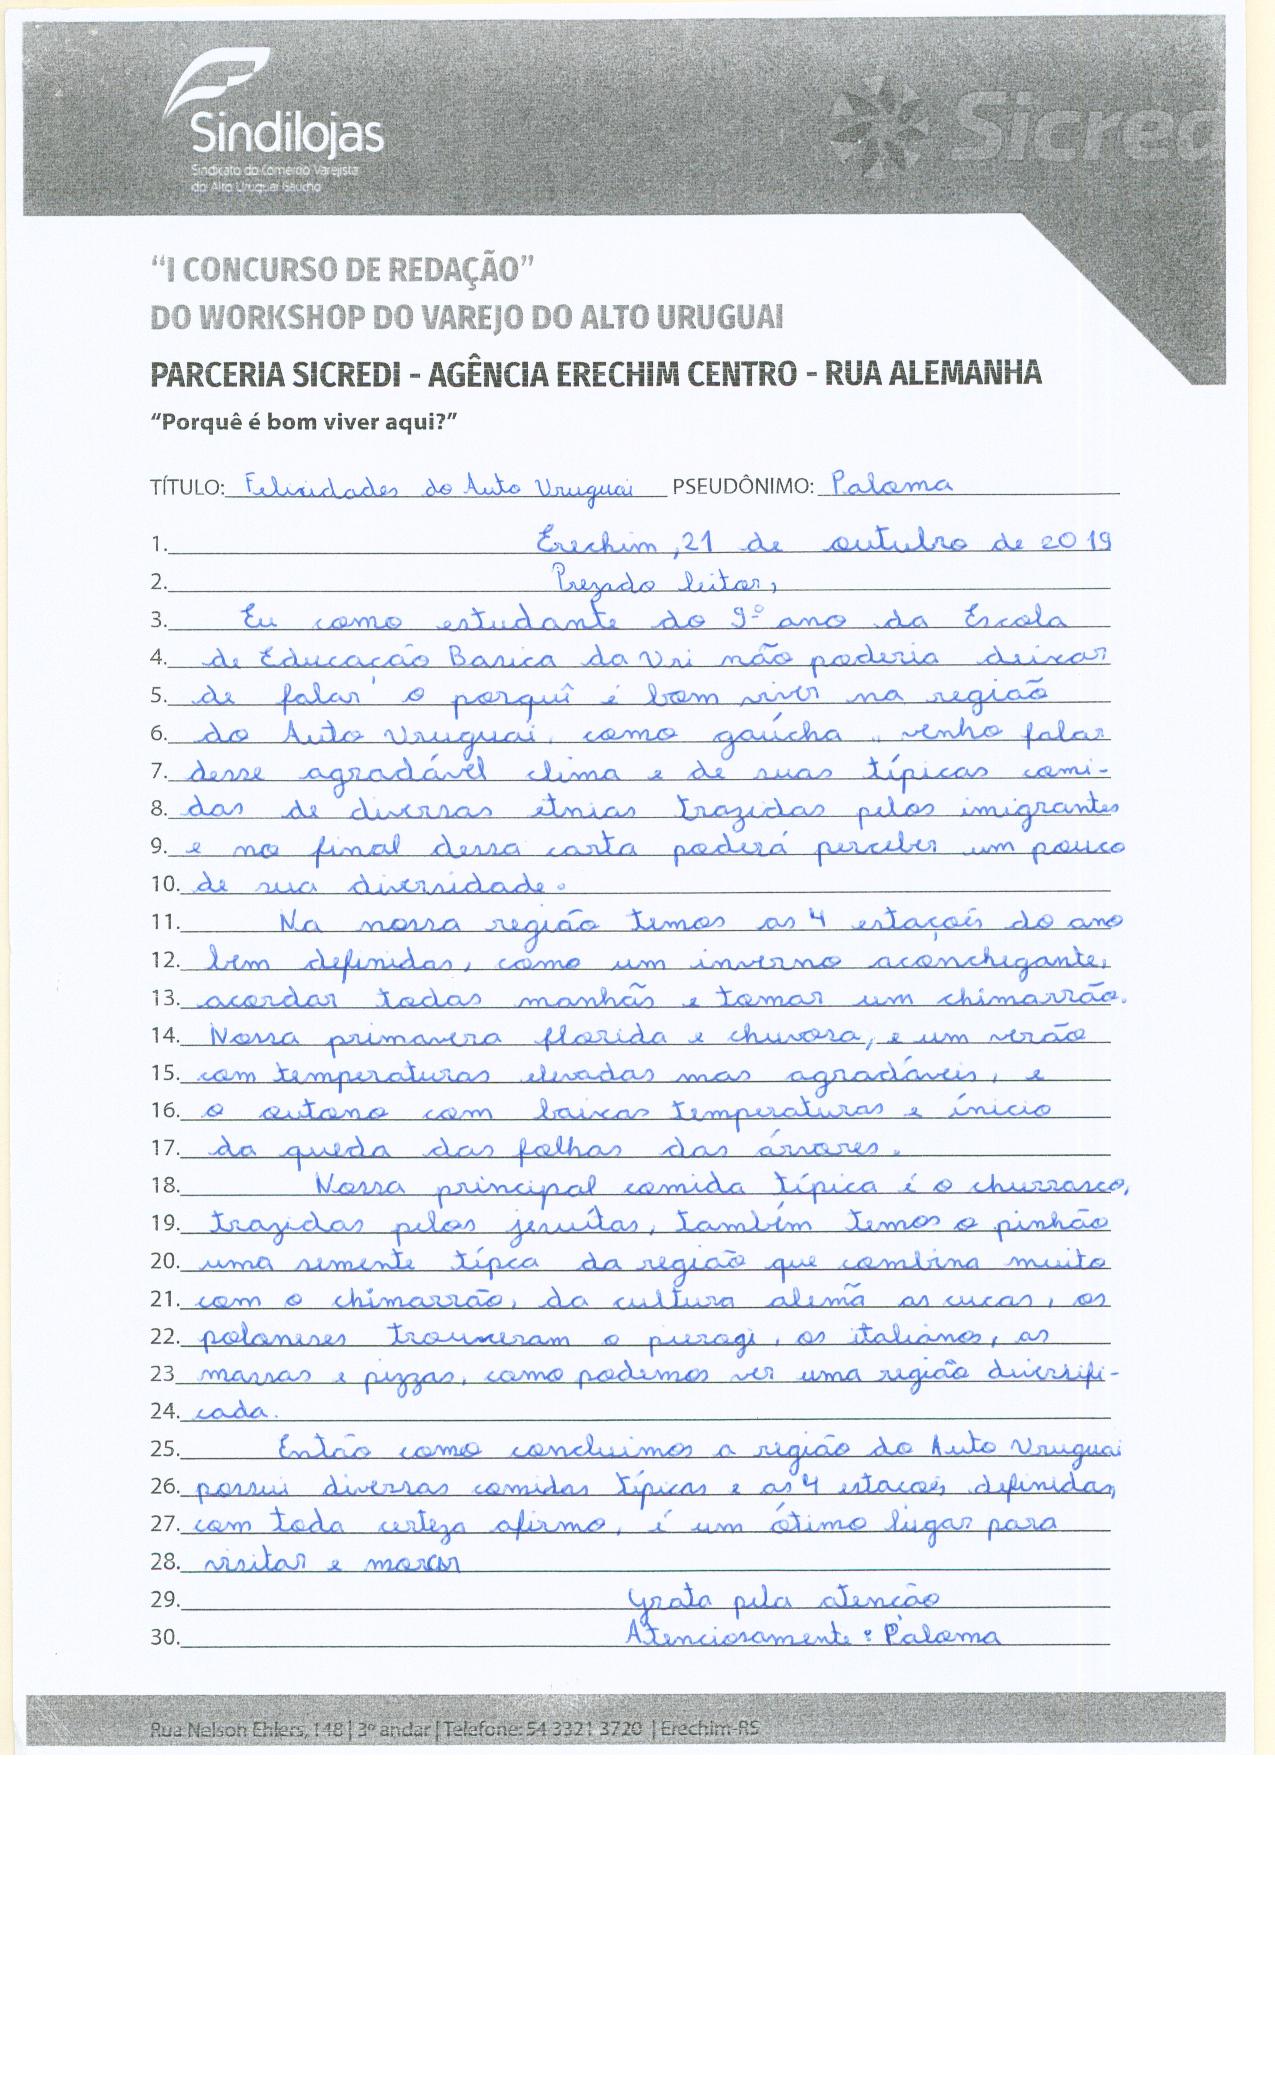 Sindilojas
Sindicato do Comércio Varejista
do Alto Uruguai Gaúcho
Sicred
“I CONCURSO DE REDAÇÃO”
DO WORKSHOP DO VAREJO DO ALTO URUGUAI
PARCERIA SICREDI - AGÊNCIA ERECHIM CENTRO - RUA ALEMANHA
“Porquê é bom viver aqui?”
TÍTULO: Felicidades do Auto Uruguai PSEUDÔNIMO: Paloma
1. Erechim, 21 de outubro de 2019
2. Prezado leitor,
3. Eu como estudante do 9º ano da Escola
4. de Educação Basica da Uri não poderia deixar
5. de falar o porquê é bom viver na região
6. do Auto Uruguai, como gaúcha, venho falar
7. desse agradável clima e de suas típicas comi-
8. das de diversas etnias trazidas pelos imigrantes
9. e no final dessa carta poderá perceber um pouco
10. de sua diversidade.
11. Na nossa região temos as 4 estaçoẽs do ano
12. bem definidas, como um inverno aconchegante,
13. acordar todas manhãs e tomar um chimarrão.
14. Nossa primavera florida e chuvosa, e um verão
15. com temperaturas elevadas mas agradáveis, e
16. o outono com baixas temperaturas e ínicio
17. da queda das folhas das árvores.
18. Nossa principal comida típica é o churrasco,
19. trazidas pelos jesuítas, também temos o pinhão
20. uma semente típca da região que combina muito
21. com o chimarrão, da cultura alemã as cucas, os
22. poloneses trouxeram o pierogi, os italianos, as
23 massas e pizzas, como podemos ver uma região diversifi-
24. cada.
25. Então como concluimos a região do Auto Uruguai
26. possui diversas comidas típicas e as 4 estacoẽs definidas,
27. com toda certeza afirmo, é um ótimo lugar para
28. visitar e morar
29. Grata pela atenção
30. Atenciosamente: Paloma
Rua Nelson Ehlers, 148 | 3º andar | Telefone: 54 3321 3720 | Erechim-RS